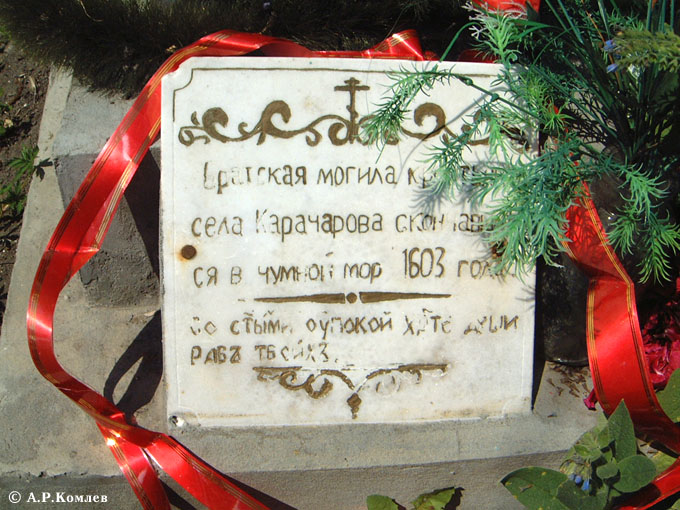 Братская могила
села Карачарова
ся в чумной мор 1603
со ст҃ыми оупокой хр҃те
рабъ твоихъ.
© А.Р.Комлев